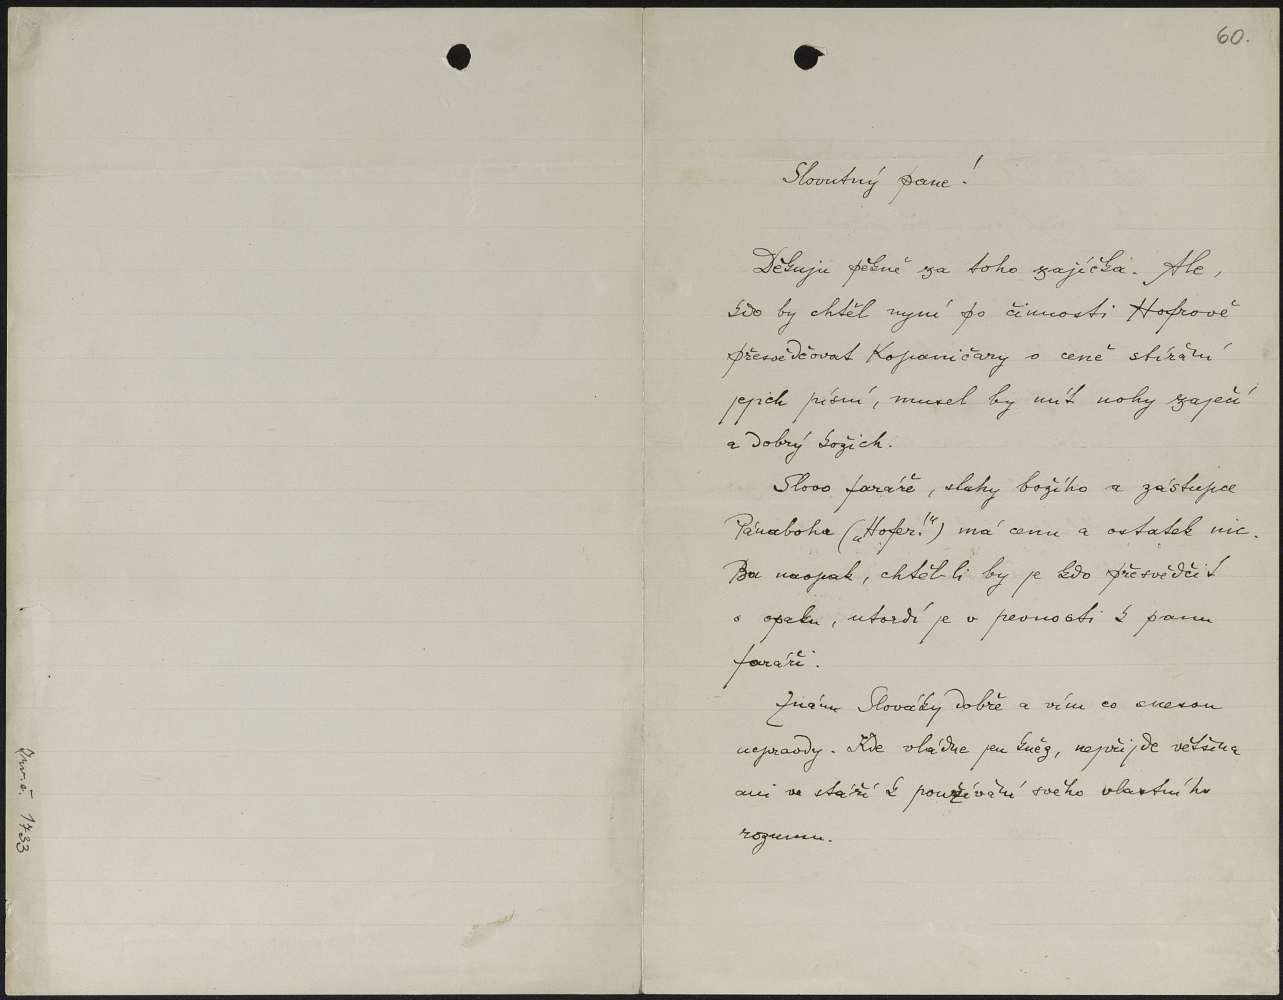 60.
Slovutný pane!
Děkuju pěkně za toho zajíčka. Ale,
kdo by chtěl nyní po činnosti Hofrově
přesvědčovat Kopaničary o ceně stírání
jejich písní, musel by mít nohy zaječí
a dobrý kožich.
Slovo faráře, sluhy božího a zástupce
Pánaboha („Hofer!“) má cenu a ostatek nic.
Ba naopak, chtěl-li by je kdo přesvědčit
o opaku, utvrdí je v pevnosti k panu
faráři.
Znám Slováky dobře a vím co snesou
nepravdy. Kde vládne jen kněz, nepřijde většina
ani ve stáří k používání svého vlastního
rozumu.
1733